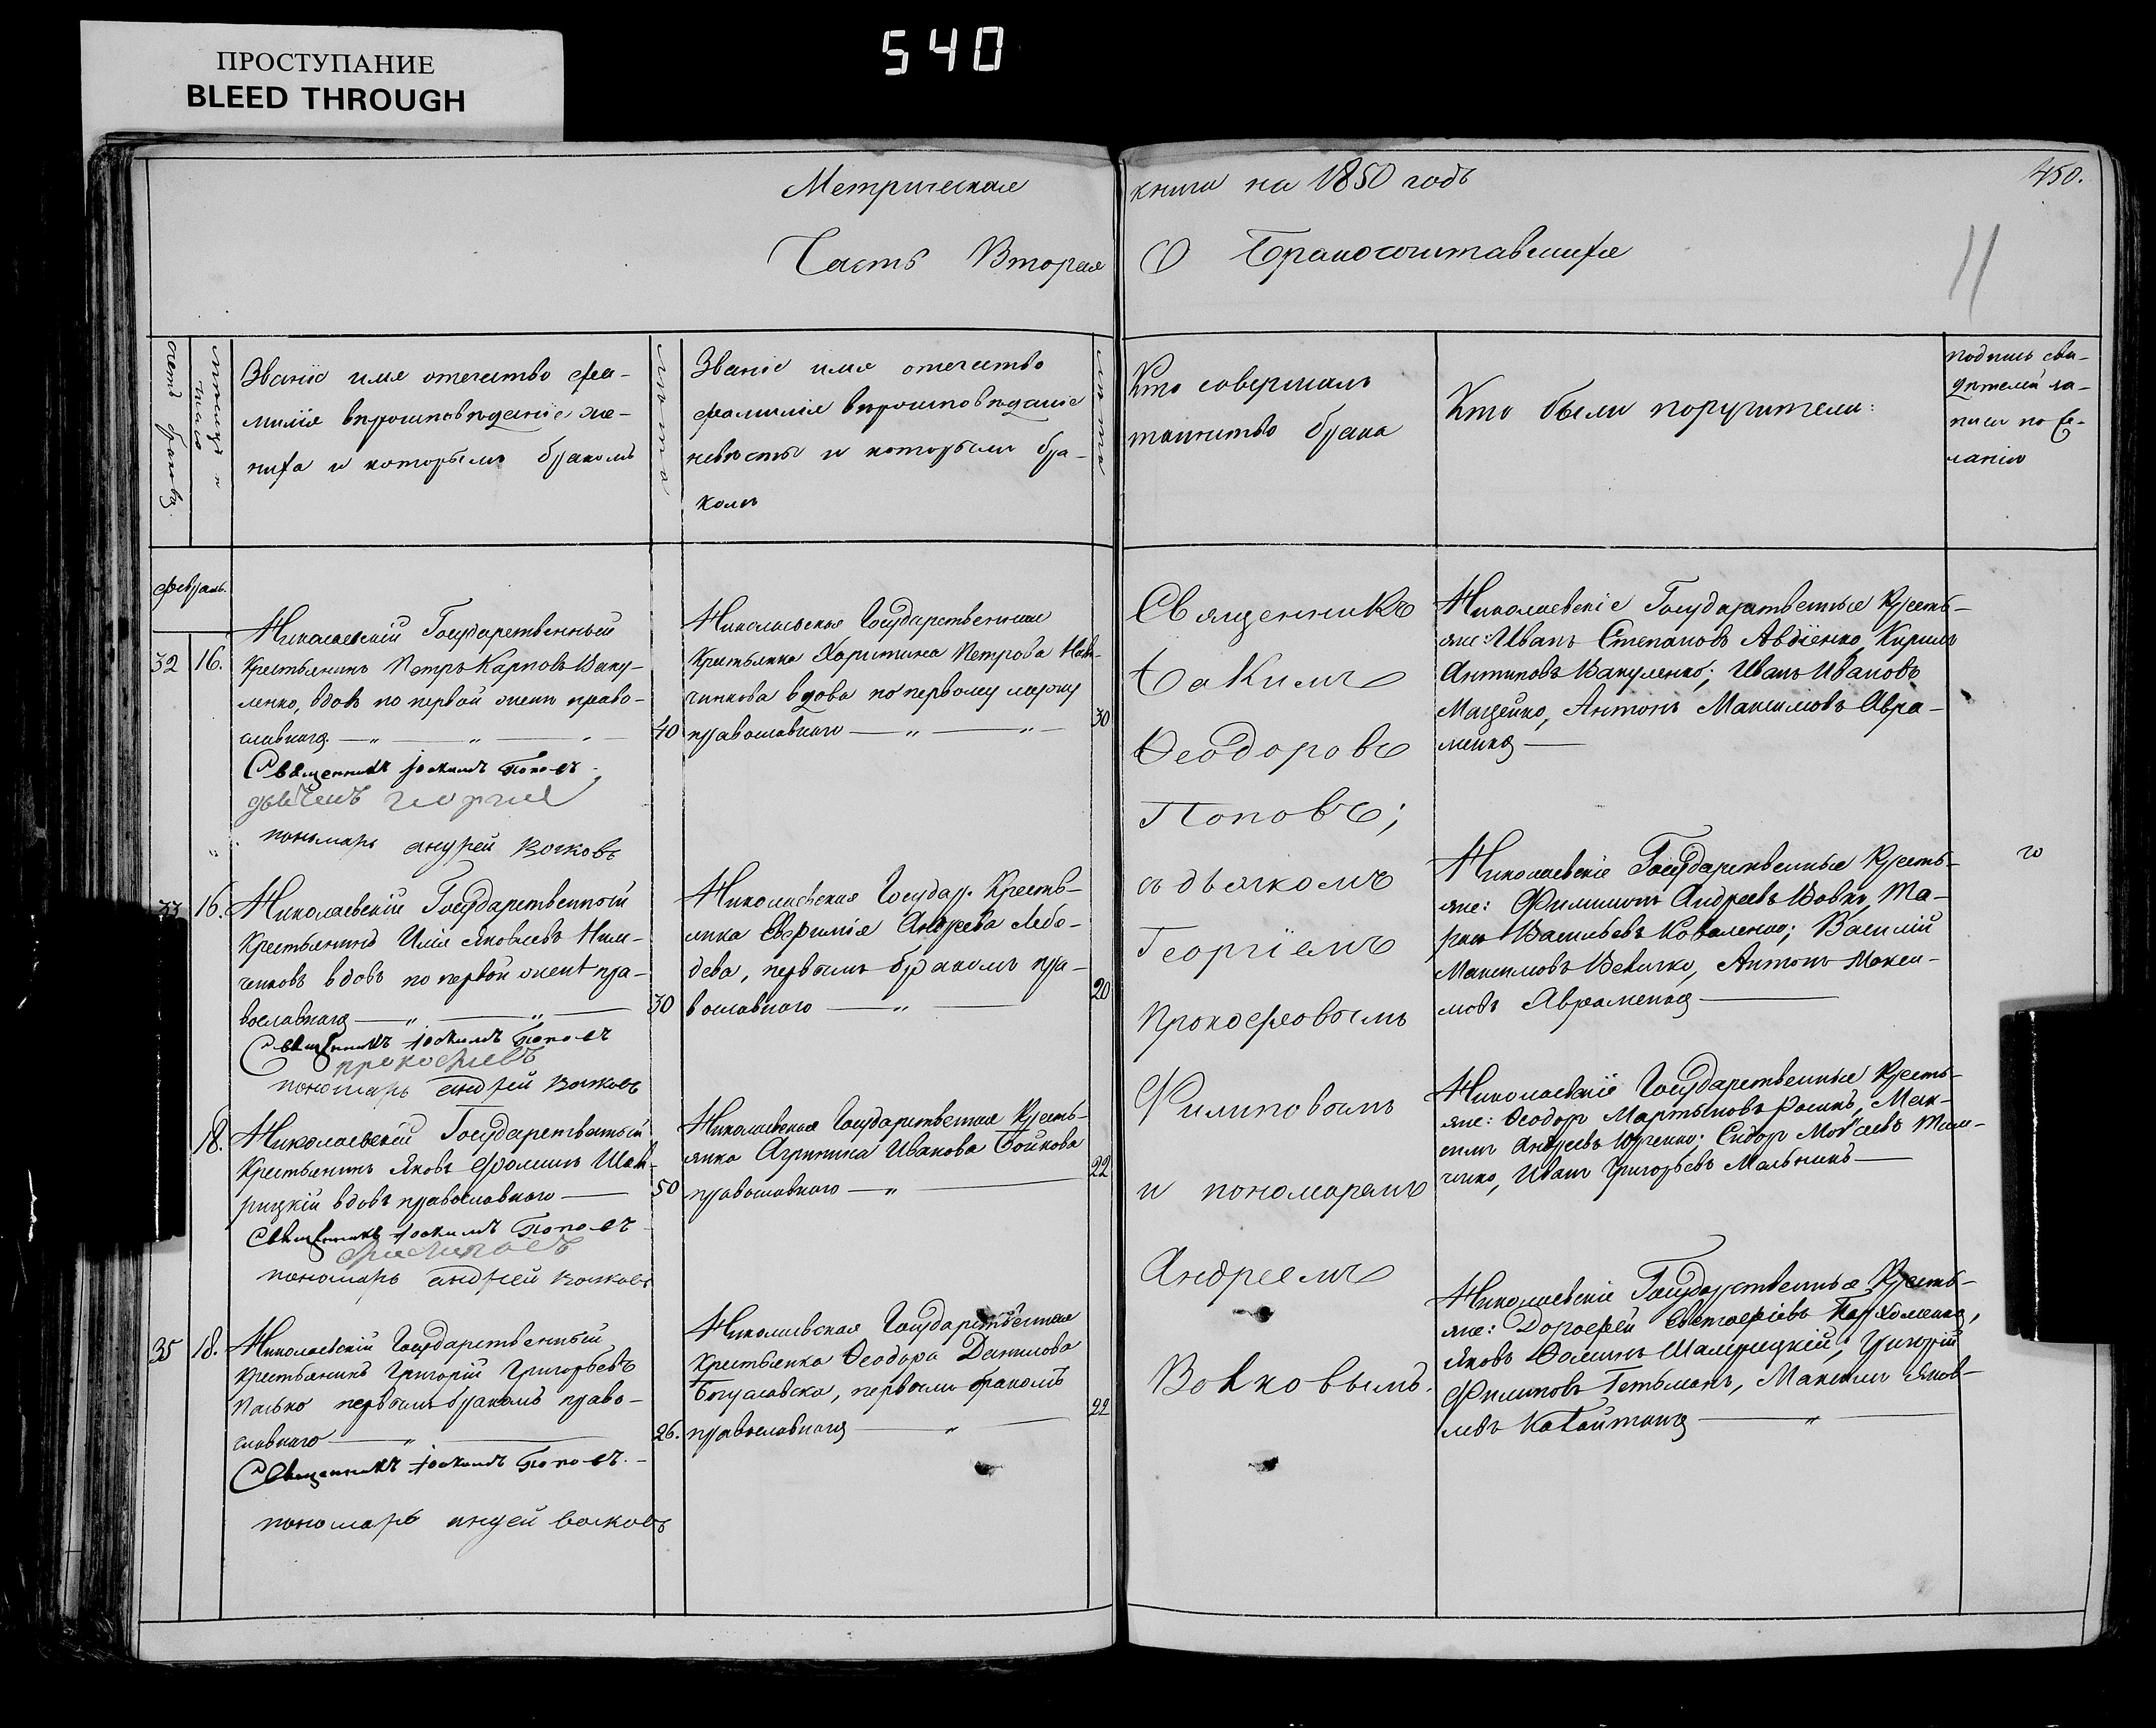 ПРОСТУПАНИЕ
BLEED THROUGH
540
450.
Метрическая книга на 1850 годъ
Часть Вторая О Бракосочитавшихся
11
счетъ браковъ
мѣсяцъ и число
Званіе имя отечество фа-
милія вѣроисповѣданіе же-
ниха и которымъ бракомъ
лѣта
Званіе имя отечество
фамилія вѣроисповѣданіе
невѣсты и которымъ бра-
комъ
лѣта
Кто совершалъ
таинство брака
Кто были поручители:
подпись сви-
дѣтелей за-
писи по же-
ланію
февраль.
32 16.
Николаевскій Государственный
Крестьянинъ Петръ Карповъ Ваку-
ленко, вдовъ по первой женѣ право-
славнаго — „ — „ —
40
Священникъ Іоакимъ Поповъ
дьячекъ георгій
пономарь андрей Волковъ
Николаевская Государственная
Крестьянка Харитина Петрова
вдова по первому мужу
православнаго — „ — „ —
30
Николаевскіе Государственные Кресть-
яне: Иванъ Степановъ Авдіенко, Кирилъ
Антиповъ Вакуленко; Иванъ Ивановъ
Мацейко, Антонъ Максимовъ Авра-
менко —
33 16.
Николаевскій Государственный
Крестьянинъ Илія Яковлевъ
вдовъ по первой женѣ пра-
вославнаго — „ — „ —
30
Священникъ Іоакимъ Поповъ
прокофіевъ
пономарь андрей Волковъ
Николаевская Государ. Кресть-
янка Евфимія Андреева Лебе-
дева, первымъ бракомъ пра-
вославнаго — „ —
20
Николаевскіе Государственные Кресть-
яне: Филимонъ Андреевъ Вовкъ, Та-
расъ Васильевъ Коваленко; Василій
Максимовъ Величко, Антонъ Макси-
мовъ Авраменко —
18.
Николаевскій Государственный
Крестьянинъ Яковъ Фоминъ
вдовъ православнаго —
50
Священникъ Іоакимъ Поповъ
филиповъ
пономарь андрей Волковъ
Николаевская Государственная Кресть-
янка Агрипина Иванова Бойкова
православнаго — „ —
22
Николаевскіе Государственные Кресть-
яне: Ѳеодоръ Мартыновъ Мак-
симъ Андреевъ Юрченко; Сидоръ
Иванъ Григорьевъ Мальникъ —
35 18.
Николаевскій Государственный
Крестьянинъ Григорій Григорьевъ
Палько первымъ бракомъ право-
славнаго — „ —
26.
Священникъ Іоакимъ Поповъ.
пономарь андрей волковъ
Николаевская Государственная
Крестьянка Ѳеодора Данилова
Богуславска, первымъ бракомъ
православнаго — „ —
22
Николаевскіе Государственные Кресть-
яне: Дорофей Евстафіевъ Пархоменко,
Яковъ Ѳоминъ Григорій
Филиповъ Гетьманъ, Максимъ Яков-
левъ —
Священникъ
Іакимъ
Ѳеодоровъ
Поповъ;
съ дьячкомъ
Георгіемъ
Прокофьовымъ
Филиповымъ
и пономаремъ
Андреемъ
Волковымъ.